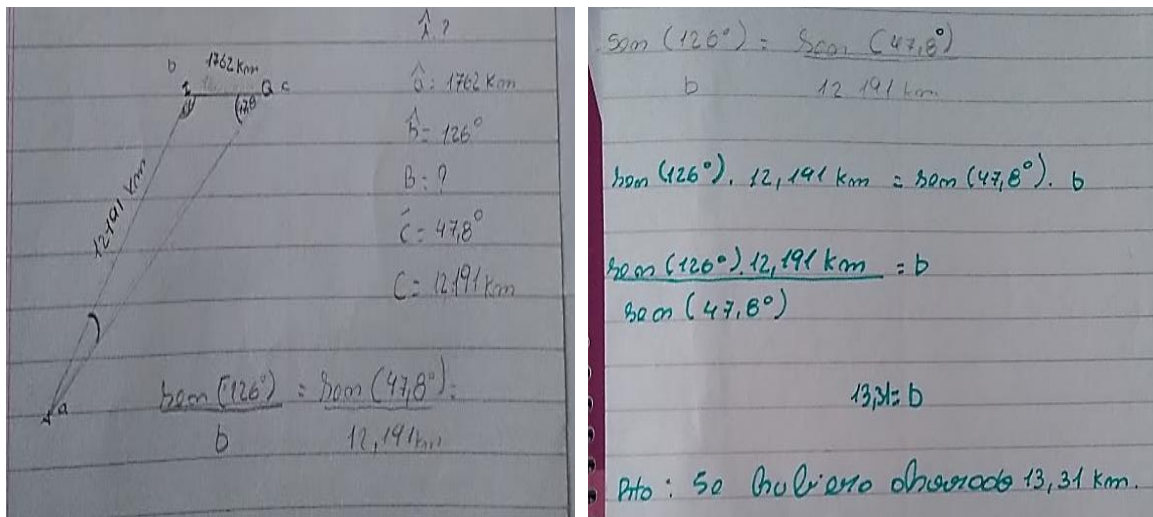 Â ?
b 1762 km
Q c
12191 km
a
â: 1762 km
b̂= 126°
B: ?
ĉ= 47,8°
C= 12.191 km
sen (126°) = sen (47,8°):
b 12,191 km
sen (126°) = sen (47,8°)
b 12 191 km
sen (126°). 12,191 km = sen (47,8°). b
sen (126°). 12,191 km = b
sen (47,8°)
13,31= b
Rto: Se hubiera ahorrado 13,31 km.